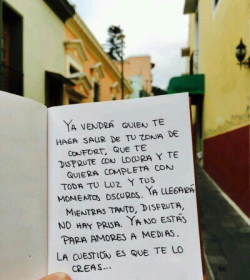 YA VENDRÁ QUIEN TE
HAGA SALIR DE TU ZONA DE
CONFORT, QUE TE
DISFRUTE CON LOCURA Y TE
QUIERA COMPLETA CON
TODA TU LUZ Y TUS
MOMENTOS OSCUROS. YA LLEGARÁ
MIENTRAS TANTO, DISFRUTA,
NO HAY PRISA. YA NO ESTÁS
PARA AMORES A MEDIAS.
LA CUESTIÓN ES QUE TE LO
CREAS...